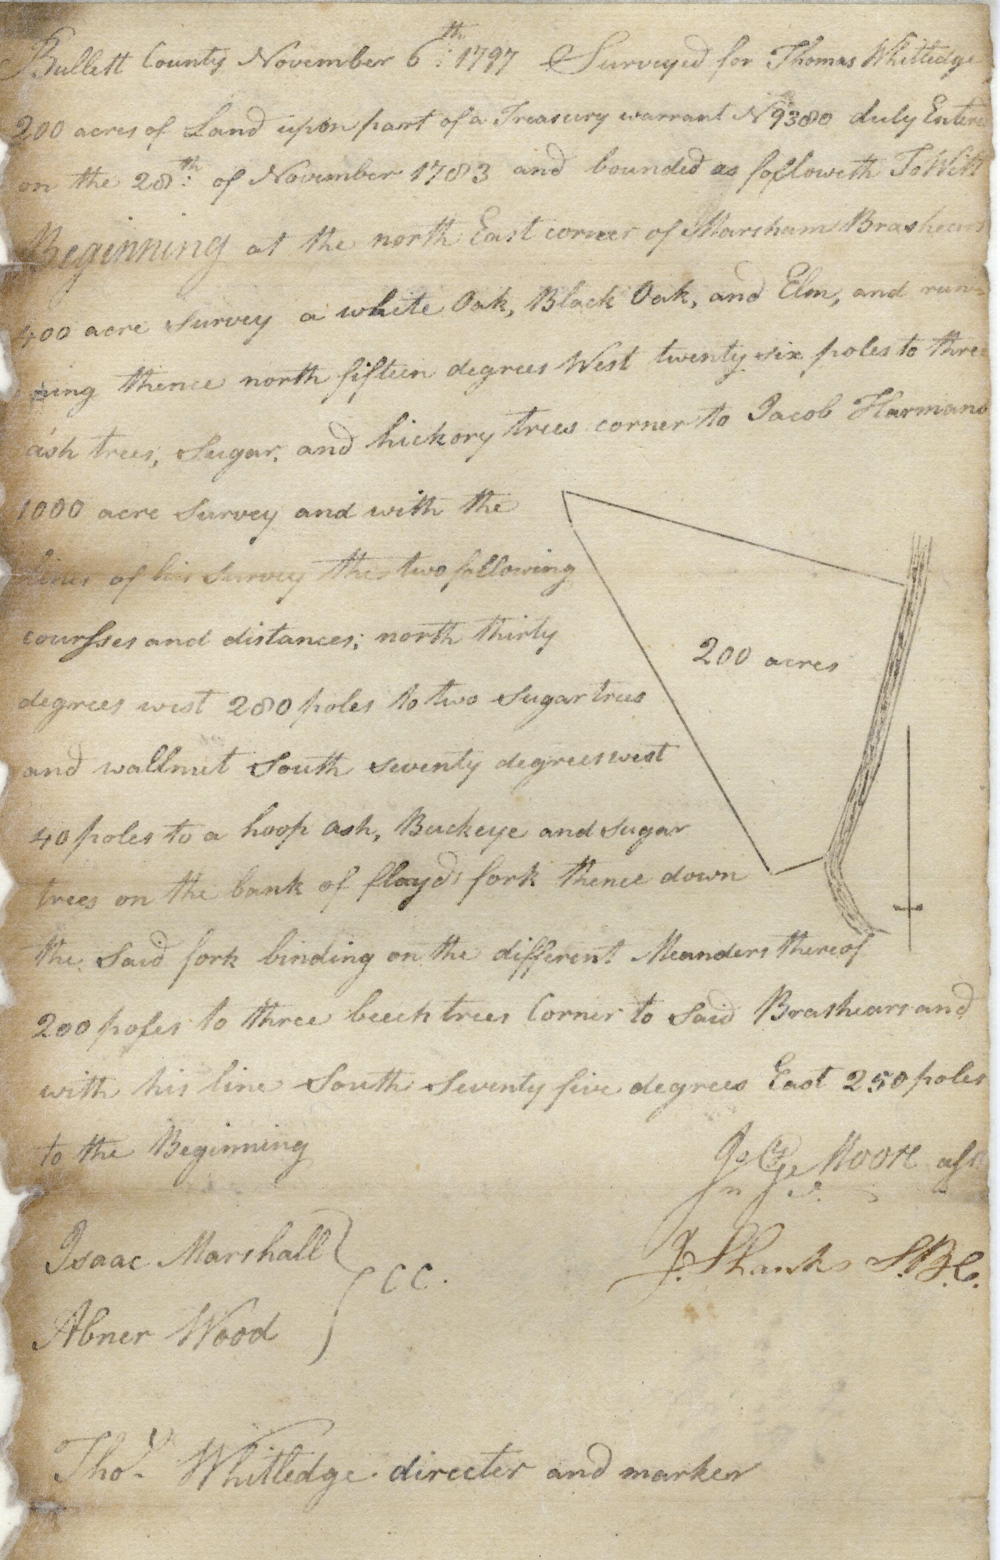 Bullett County November 6th: 1797 Surveyed for Thomas Whitledge
200 acres of Land upon part of a Treasury warrant No 9380 duly Entere
on the 28th: of November 1783 and bounded as followeth To Witt
Beginning at the north East corner of Marsham Brashears
400 acre survey a white Oak, Black Oak, and Elm, and run-
ning thence north fifteen degrees West twenty six poles to three
ash trees, Sugar, and hickory trees corner to Jacob Harmans
1000 acre Survey and with the
lines of his Survey the two following
coursses and distances; north thirty
degrees west 280 poles to two Sugar trees
and wallnut South seventy degrees west
40 poles to a hoop ash, Buckeye and sugar
trees on the bank of floyds fork thence down
the Said fork binding on the different Meanders thereof
200 poles to three beech trees Corner to Said Brashears and
with his line South Seventy five degrees East 250 poles
to the Beginning
200 acres
Moore
J. Shanks S.B.C.
Isaac Marshall
Abner Wood
CC.
Thos. Whitledge directer and marker